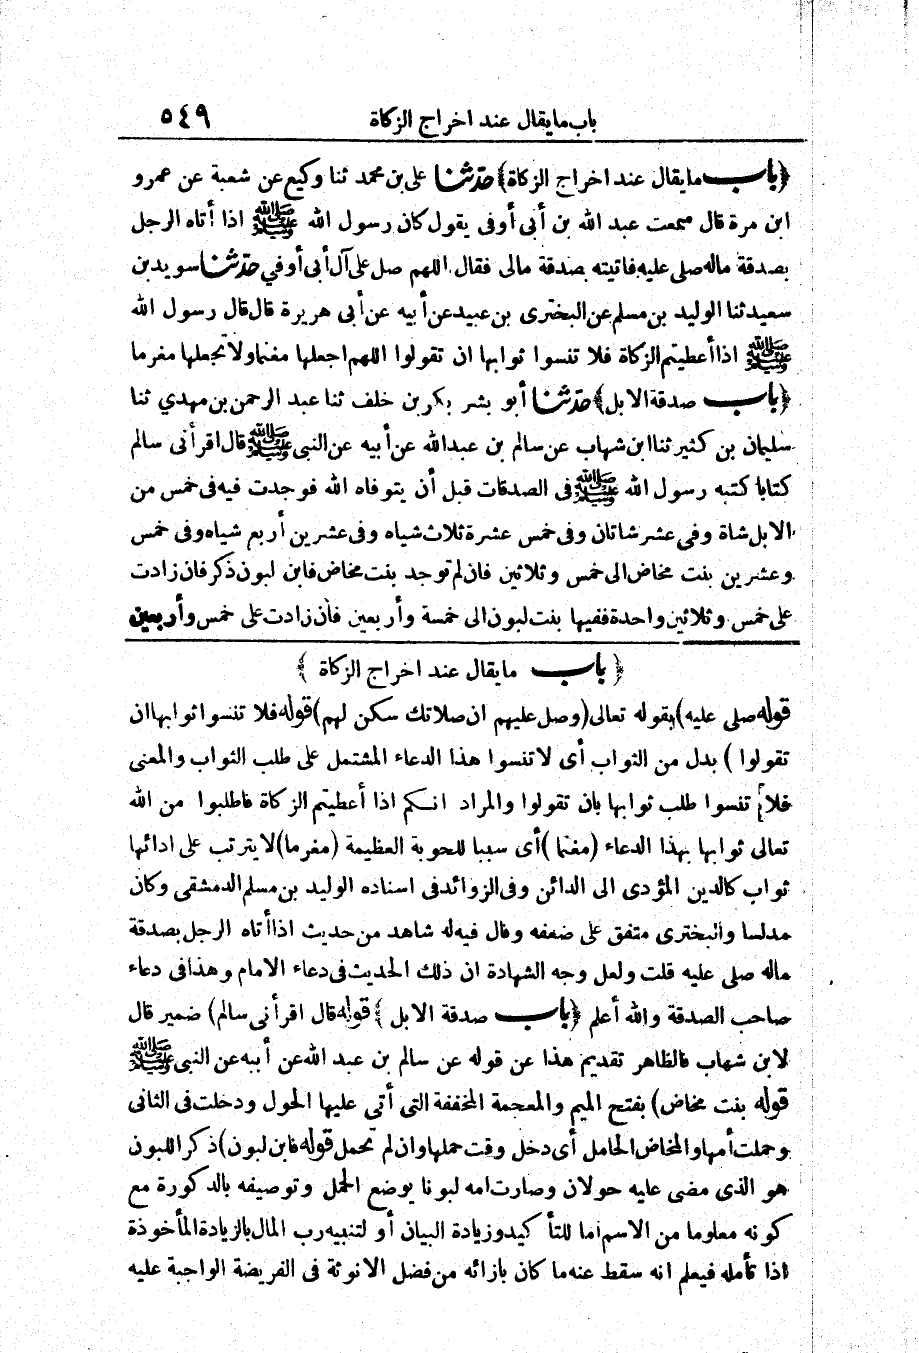 باب ما يقال عند اخراج الزكاة ٥٤٩
﴿باب ما يقال عند اخراج الزكاة﴾ حدّثنا على بن محمد ثنا وكيع عن شعبة عن عمرو
ابن مرة قال سمعت عبد الله بن أبى أوفى يقول كان رسول الله ﷺ اذا أتاه الرجل
بصدقة ماله صلى عليه فاتيته بصدقة مالى فقال اللهم صل على آل أبى أوفي حدّثنا سويد بن
سعيد ثنا الوليد بن مسلم عن البخترى بن عبيد عن أبيه عن أبى هريرة قال قال رسول الله
ﷺ اذا أعطيتم الزكاة فلا تنسوا ثوابها ان تقولوا اللهم اجعلها مغنما ولا تجعلها مغرما
﴿باب صدقة الابل﴾ حدّثنا أبو بشر بكر بن خلف ثنا عبد الرحمن بن مهدي ثنا
سليمان بن كثير ثنا ابن شهاب عن سالم بن عبدالله عن أبيه عن النبى ﷺ قال اقرأنى سالم
كتابا كتبه رسول الله ﷺ فى الصدقات قبل أن يتوفاه الله فوجدت فيه فى خمس من
الابل شاة وفي عشر شاتان وفى خمس عشرة ثلاث شياه وفى عشرين أربع شياه وفى خمس
وعشرين بنت مخاض الى خمس وثلاثين فان لم توجد بنت مخاض فابن لبون ذكر فان زادت
على خمس وثلاثين واحدة ففيها بنت لبون الى خمسة وأربعين فان زادت على خمس وأربعين
﴿ باب ما يقال عند اخراج الزكاة ﴾
قوله صلى عليه) بقوله تعالى (وصل عليهم ان صلاتك سكن لهم) قوله فلا تنسوا ثوابها ان
تقولوا ) بدل من الثواب أى لا تنسوا هذا الدعاء المشتمل على طلب الثواب والمعنى
فلا تنسوا طلب ثوابها بان تقولوا والمراد انكم اذا أعطيتم الزكاة فاطلبوا من الله
تعالى ثوابها بهذا الدعاء (مغنما) أى سببا للحوبة العظيمة (مغرما) لا يترتب على ادائها
ثواب كالدين المؤدى الى الدائن وفى الزوائد فى اسناده الوليد بن مسلم الدمشقى وكان
مدلسا والبخترى متفق على ضعفه وقال فيه له شاهد من حديث اذا أتاه الرجل بصدقة
ماله صلى عليه قلت ولعل وجه الشهادة ان ذلك الحديث فى دعاء الامام وهذا فى دعاء
صاحب الصدقة والله أعلم ﴿باب صدقة الابل ﴾ قوله قال اقرأنى سالم) ضمير قال
لابن شهاب فالظاهر تقديم هذا عن قوله عن سالم بن عبد الله عن أبيه عن النبى ﷺ
قوله بنت مخاض) بفتح الميم والمعجمة المخففة التى أتى عليها الحول ودخلت فى الثانى
وحملت أمها والمخاض الحامل أى دخل وقت حملها وان لم تحمل قوله فابن لبون) ذكر اللبون
هو الذى مضى عليه حولان وصارت امه لبونا بوضع الحمل وتوصيفه بالذكورة مع
كونه معلوما من الاسم اما للتأكيد وزيادة البيان أو لتنبيه رب المال بالزيادة المأخوذة
اذا تأمله فيعلم انه سقط عنه ما كان بازائه من فضل الانوثة فى الفريضة الواجبة عليه